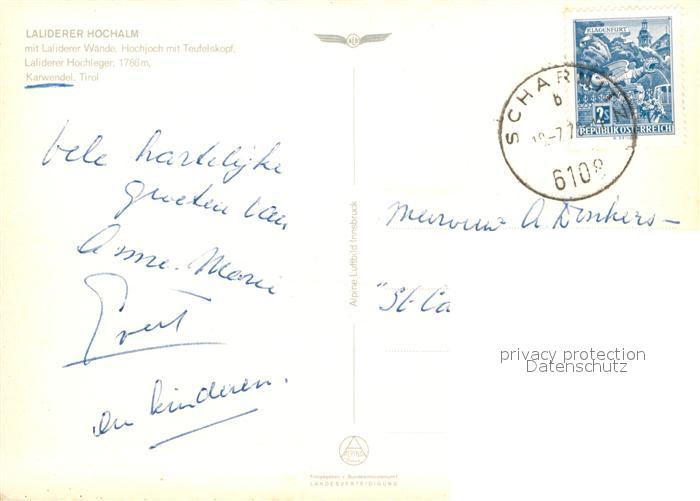 LALIDERER HOCHALM
mit Laliderer Wände, Hochjoch mit Teufelskopf,
Laliderer Hochleger, 1786m,
Karwendel, Tirol
KLAGENFURT
2S
REPUBLIK ÖSTERREICH
SCHARNITZ
b
6108
vele hartelijke
groeten van
Anne-Marie
Evert
en kinderen.
Alpine Luftbild Innsbruck
Mevrouw A. Donkers-
"St-Ca
privacy protection
Datenschutz
ALPINE
Freigegeben v. Bundesministerium f.
LANDESVERTEIDIGUNG